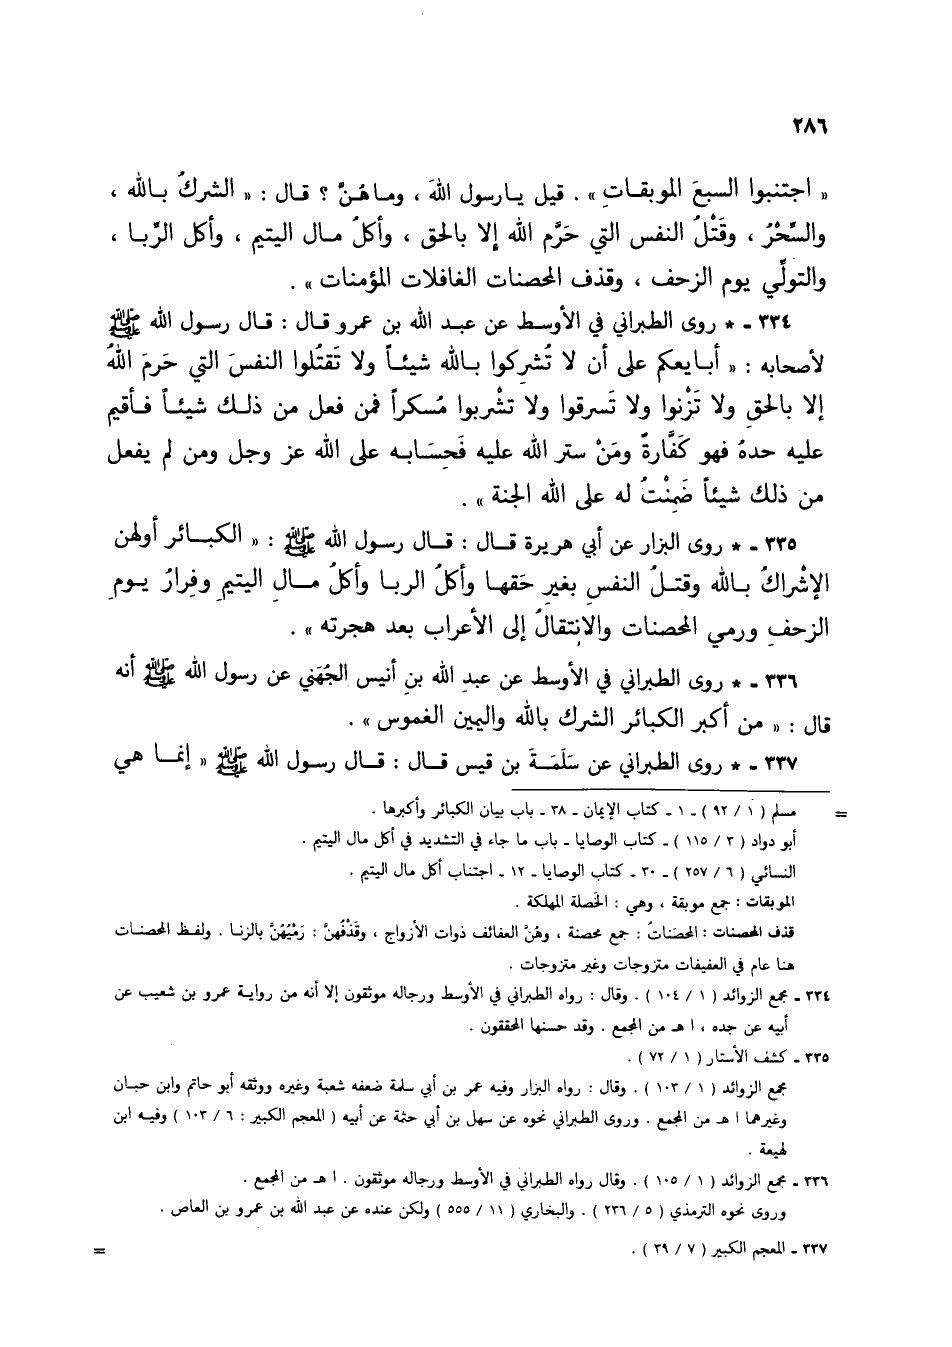 ٢٨٦
« اجتنبوا السبعَ الموبقاتِ » . قيل يارسول اللهَ ، وماهُنَّ ؟ قال : « الشركُ بالله ،
والسِّحْرُ ، وقَتْلُ النفس التي حَرَّم الله إلا بالحق ، وأكلُ مال اليتيم ، وأكل الرِّبا ،
والتولِّي يوم الزحف ، وقذف المحصنات الغافلات المؤمنات » .
٣٣٤ - * روى الطبراني في الأوسط عن عبد الله بن عمرو قال : قال رسول الله ﷺ
لأصحابه : « أبايعكم على أن لا تُشركوا بالله شيئاً ولا تَقتُلوا النفسَ التي حَرمَ اللهُ
إلا بالحقِ ولا تَزْنوا ولا تَسرقوا ولا تشربوا مُسكراً فمن فعل من ذلك شيئاً فأقيم
عليه حدهُ فهو كَفَّارةٌ ومَنْ ستر الله عليه فَحِسَابه على الله عز وجل ومن لم يفعل
من ذلك شيئاً ضَمِنْتُ له على الله الجنة » .
٣٣٥ - * روى البزار عن أبي هريرة قال : قال رسول الله ﷺ : « الكبائر أولهن
الإشْراكُ بالله وقتلُ النفس بغيرِ حَقها وأكلُ الربا وأكلُ مالِ اليتيم وفِرارُ يومِ
الزحفِ ورمي المحصنات والانتقالُ إلى الأعراب بعد هجرته » .
٣٣٦ - * روى الطبراني في الأوسط عن عبدِ الله بنِ أنيس الجُهَني عن رسول الله ﷺ أنه
قال : « من أكبر الكبائر الشرك بالله واليمين الغموس » .
٣٣٧ - * روى الطبراني عن سَلَمَةَ بن قيس قال : قال رسول الله ﷺ « إنما هي
= مسلم ( ١ / ٩٢ ) - ١ - كتاب الإيمان - ٣٨ - باب بيان الكبائر وأكبرها .
أبو دواد ( ٣ / ١١٥ ) - كتاب الوصايا - باب ما جاء في التشديد في أكل مال اليتيم .
النسائي ( ٦ / ٢٥٧ ) - ٣٠ - كتاب الوصايا - ١٢ - اجتناب أكل مال اليتيم .
الموبقات : جمع موبقة ، وهي : الخصلة المهلكة .
قذف المحصنات : المحصَناتُ : جمع محصنة ، وهُنَّ العفائف ذوات الأزواج ، وقَذْفُهنَّ : رَمْيُهُنَّ بالزنا . ولفظ المحصنات
هنا عام في العفيفات متزوجات وغير متزوجات .
٣٣٤ - مجمع الزوائد ( ١ / ١٠٤ ) . وقال : رواه الطبراني في الأوسط ورجاله موثقون إلا أنه من رواية عمرو بن شعيب عن
أبيه عن جده ، ا هـ من المجمع . وقد حسنها المحققون .
٣٣٥ - كشف الأستار ( ١ / ٧٢ ) .
مجمع الزوائد ( ١ / ١٠٣ ) . وقال : رواه البزار وفيه عمر بن أبي سلمة ضعفه شعبة وغيره ووثقه أبو حاتم وابن حبان
وغيرهما ا هـ من المجمع . وروى الطبراني نحوه عن سهل بن أبي حثمة عن أبيه ( المعجم الكبير : ٦ / ١٠٣ ) وفيه ابن
لهيعة .
٣٣٦ - مجمع الزوائد ( ١ / ١٠٥ ) . وقال رواه الطبراني في الأوسط ورجاله موثقون . ا هـ من المجمع .
وروى نحوه الترمذي ( ٥ / ٢٣٦ ) . والبخاري ( ١١ / ٥٥٥ ) ولكن عنده عن عبد الله بن عمرو بن العاص .
٣٣٧ - المعجم الكبير ( ٧ / ٣٩ ) . =